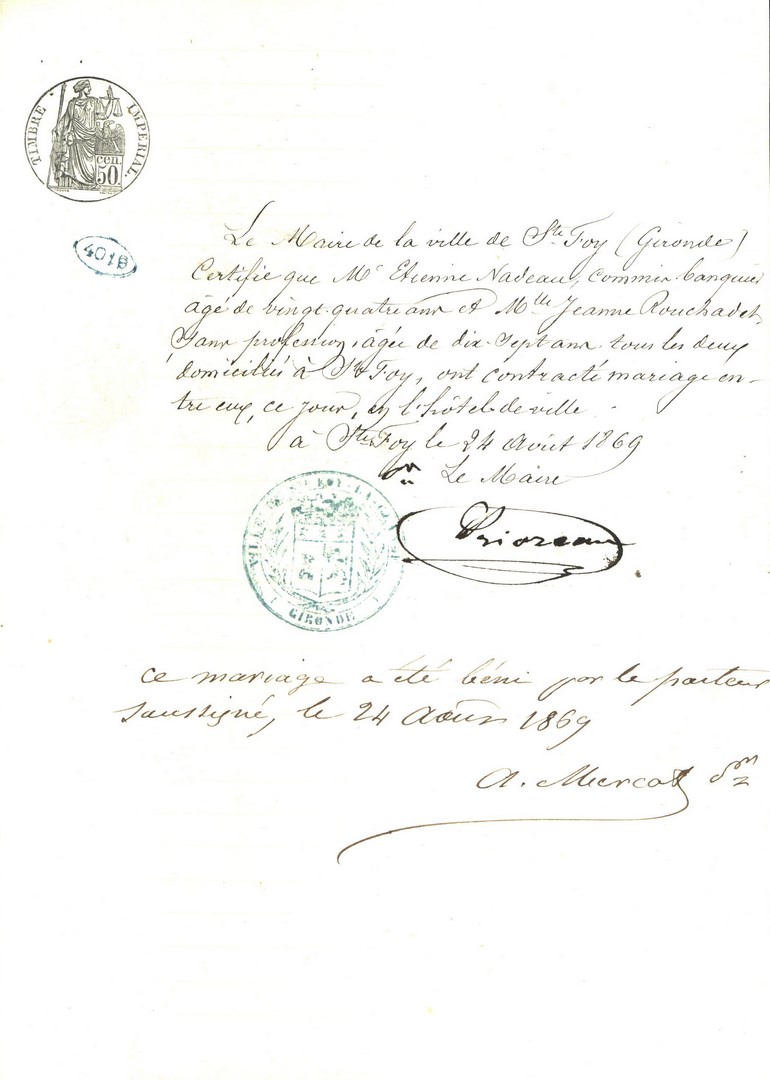 TIMBRE IMPERIAL.
cen.
50.
4018
Le Maire de la ville de Ste Foy (Gironde)
Certifie que Mr Etienne Nadeau, commis banquier
âgé de vingt-quatre ans et Mlle Jeanne Rouchadet,
sans profession, âgée de dix-sept ans tous les deux
domiciliés à Ste Foy, ont contracté mariage en-
tre eux, ce jour, en l'hôtel de ville.
à Ste Foy le 24 Août 1869
Le Maire
VILLE DE
GIRONDE
ce mariage a été béni par le pasteur
soussigné, le 24 Août 1869
A. Mercat